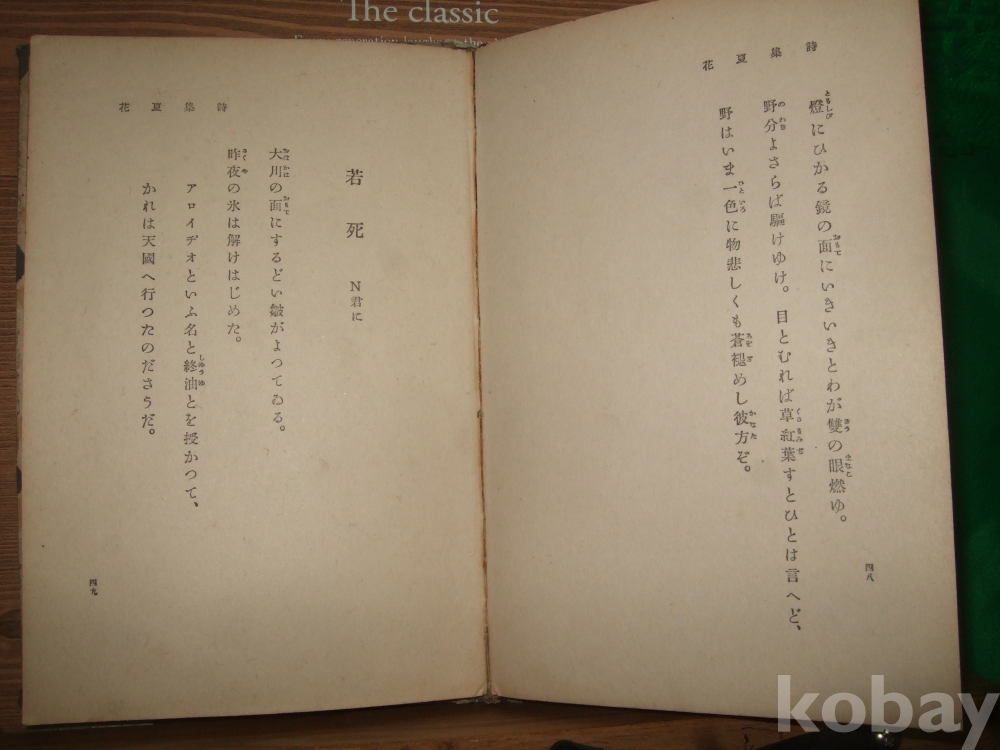 The classic
詩集夏花
燈にひかる鏡の面にいきいきとわが雙の眼燃ゆ。
野分よさらば驅けゆけ。目とむれば草紅葉すとひとは言へど、
野はいま一色に物悲しくも蒼褪めし彼方ぞ。
四八
詩集夏花
若死
N君に
大川の面にするどい皺がよつてゐる。
昨夜の氷は解けはじめた。
アロイヂオといふ名と終油とを授かつて、
かれは天國へ行つたのださうだ。
四九
kobay